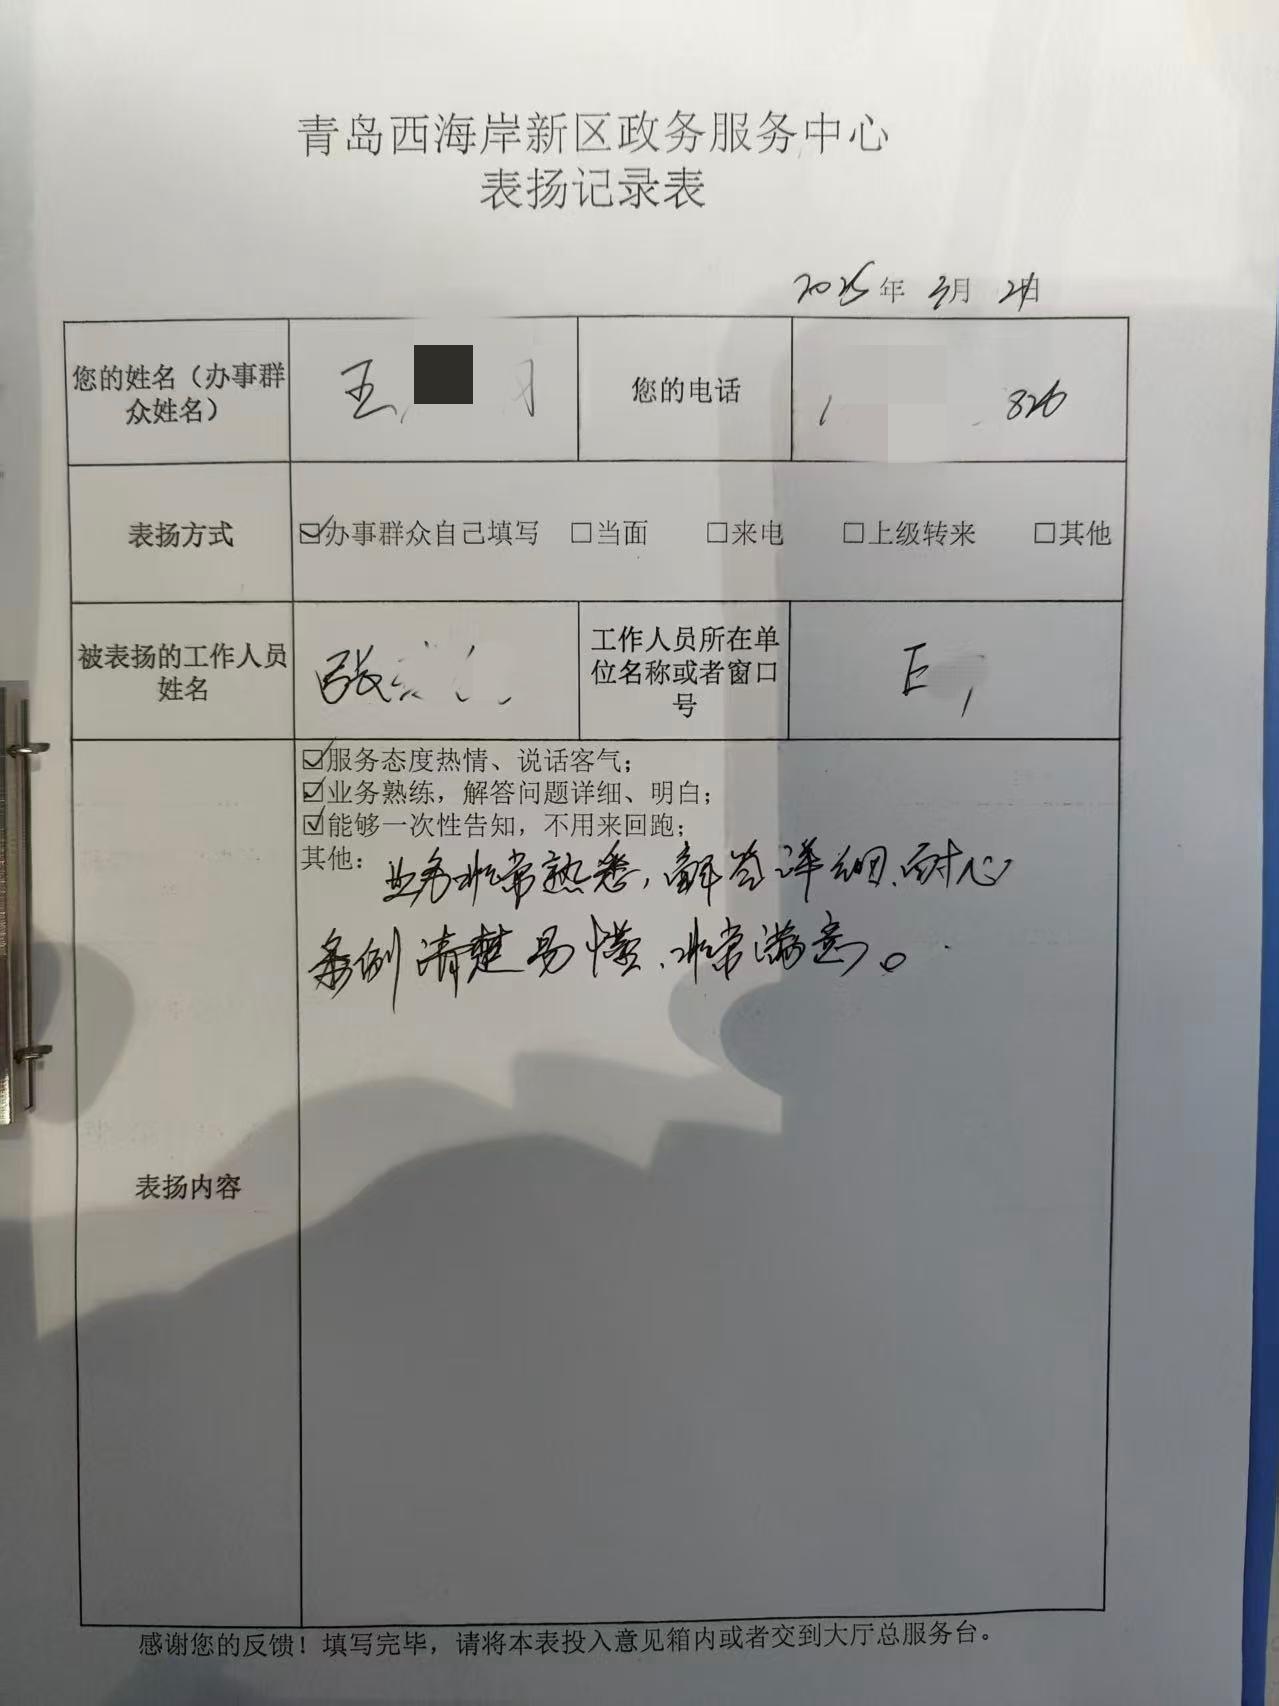 青岛西海岸新区政务服务中心
表扬记录表
2025年 3月 2日
您的姓名（办事群众姓名） 王 您的电话 1 826
表扬方式 ☑办事群众自己填写 □当面 □来电 □上级转来 □其他
被表扬的工作人员姓名 张 工作人员所在单位名称或者窗口号 E
☑服务态度热情、说话客气；
☑业务熟练，解答问题详细、明白；
☑能够一次性告知，不用来回跑；
其他：业务非常熟悉，解答详细、耐心
条例清楚易懂、非常满意。
表扬内容
感谢您的反馈！填写完毕，请将本表投入意见箱内或者交到大厅总服务台。